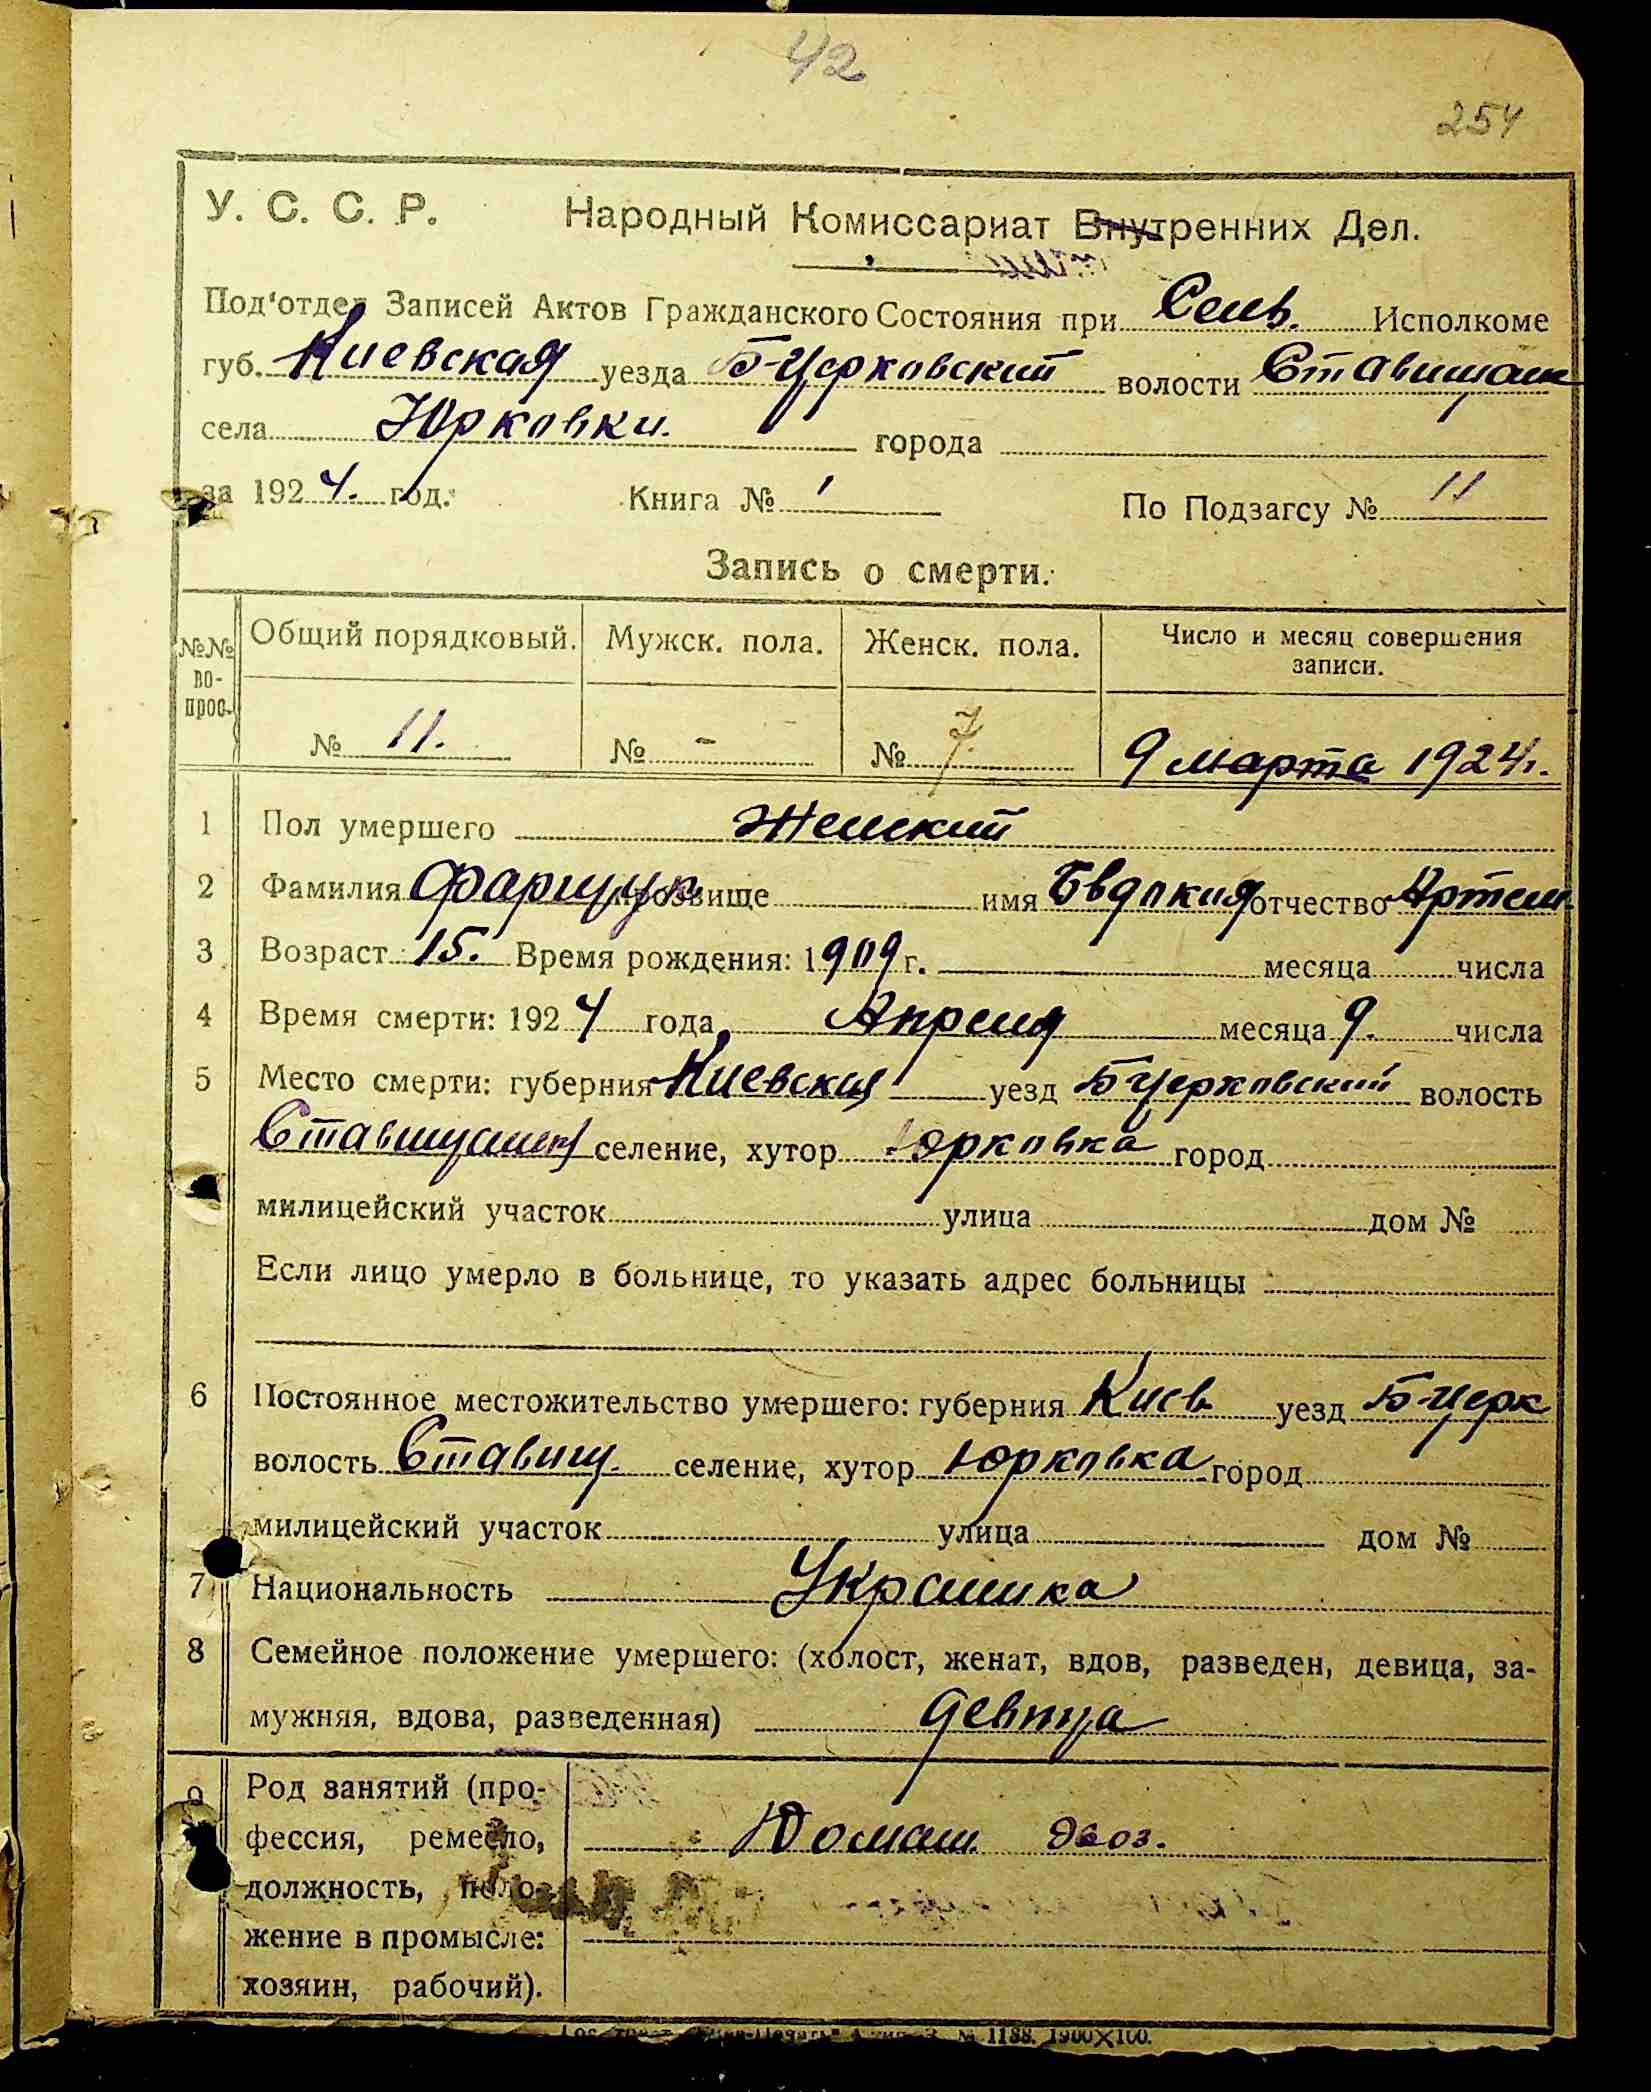 42
254
У. С. С. Р. Народный Комиссариат Внутренних Дел.
Под'отдел Записей Актов Гражданского Состояния при Сель. Исполкоме
губ. Киевская уезда Б-Церковский волости Ставищанск
села Юрковки. города
за 1924. год. Книга № 1 По Подзагсу № 11
Запись о смерти.
№№ вопрос. Общий порядковый. Мужск. пола. Женск. пола. Число и месяц совершения
записи.
№ 11. № - № 7. 9 марта 1924г.
1 Пол умершего Женский
2 Фамилия Фарищук прозвище имя Евдокия отчество Артем.
3 Возраст 15. Время рождения: 1909 г. месяца числа
4 Время смерти: 1924 года Апреля месяца 9. числа
5 Место смерти: губерния Киевская уезд Б Церковский волость
селение, хутор Юрковка город
милицейский участок улица дом №
Если лицо умерло в больнице, то указать адрес больницы
6 Постоянное местожительство умершего: губерния Киев. уезд Б-Церк
волость Ставищ. селение, хутор Юрковка город
милицейский участок улица дом №
7 Национальность Украинка
8 Семейное положение умершего: (холост, женат, вдов, разведен, девица, за-
мужняя, вдова, разведенная) девица
9 Род занятий (про-
фессия, ремесло, Домаш.
должность, поло-
жение в промысле:
хозяин, рабочий).
№ 1188. 1900X100.